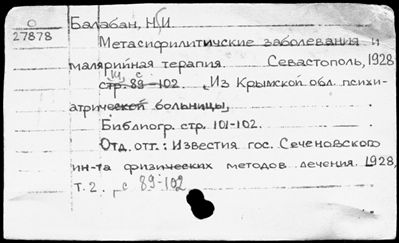 О
27878
Балабан, Н.И.
Метасифилитичские заболевания и
малярийная терапия. Севастополь, 1928
стр. 89-102. Из Крымской обл. психи-
атрической больницы,
Библиогр. стр. 101-102.
Отд. отт.: Известия гос. Сеченовского
ин-та физических методов лечения. 1928,
т. 2. , с 89-102